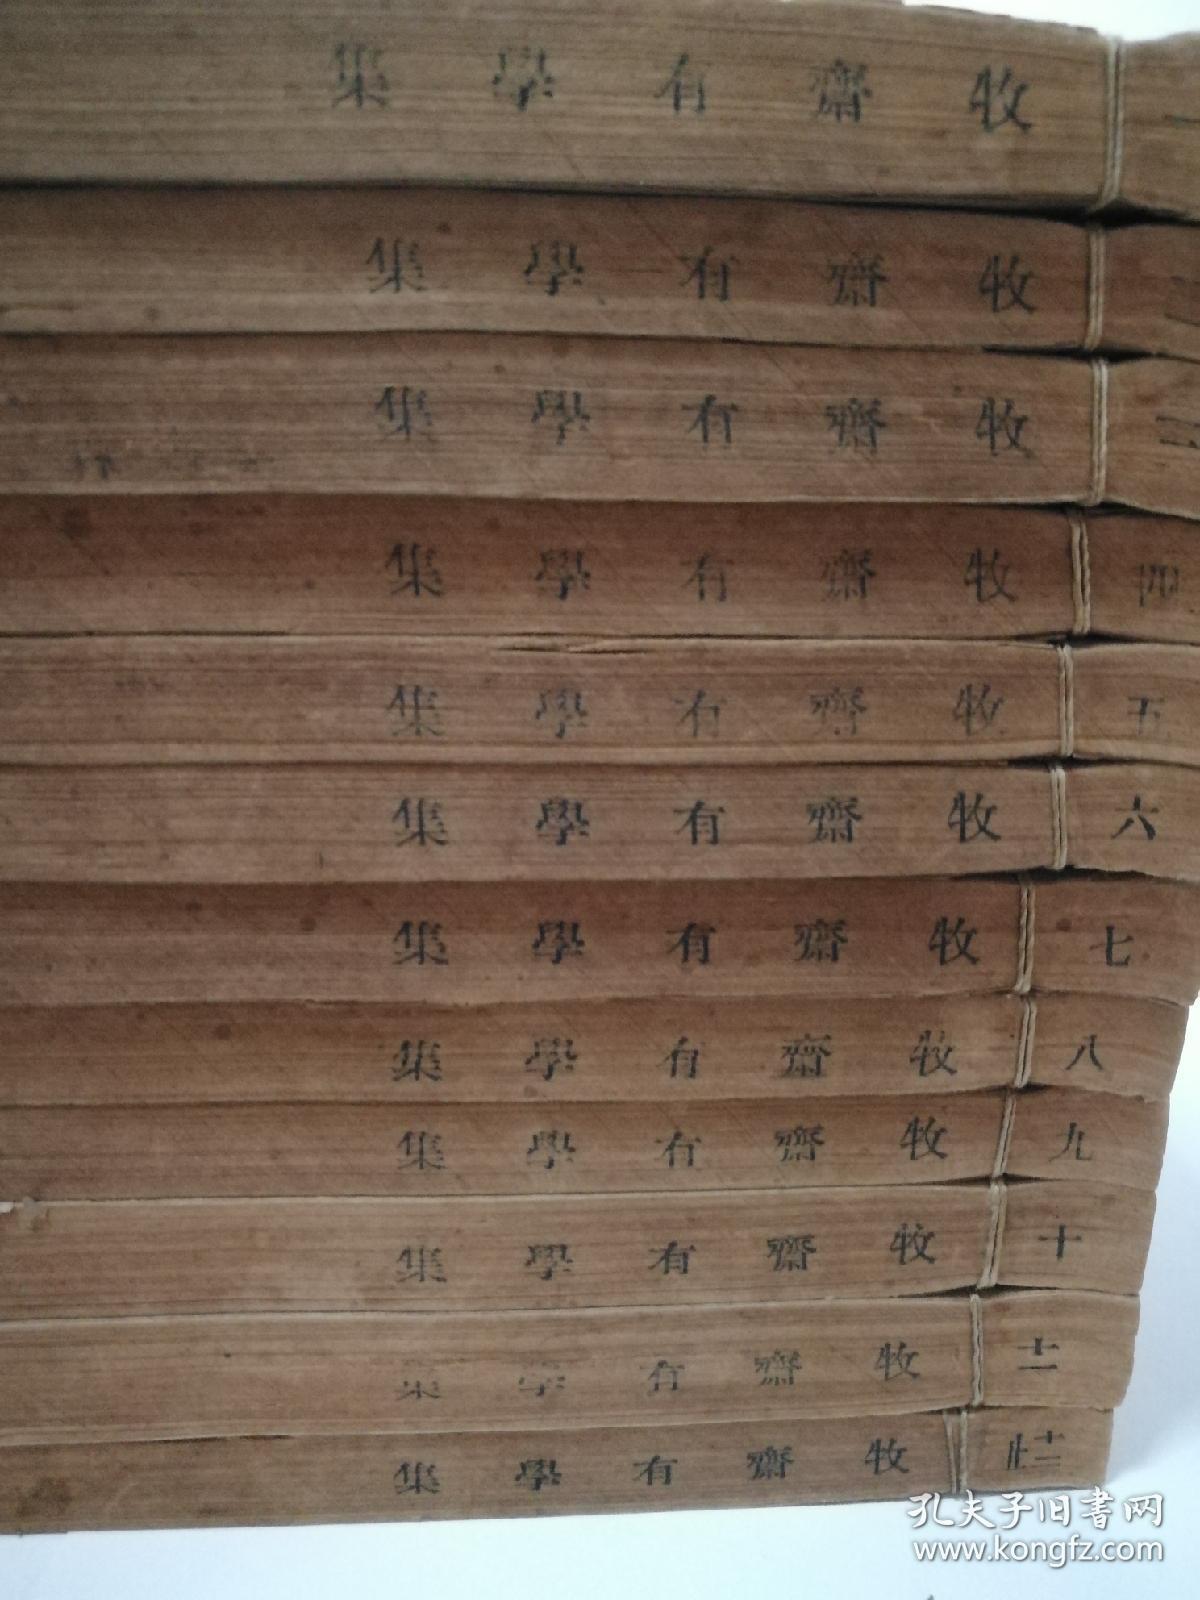 一 牧齋有學集
二 牧齋有學集
三 牧齋有學集
四 牧齋有學集
五 牧齋有學集
六 牧齋有學集
七 牧齋有學集
八 牧齋有學集
九 牧齋有學集
十 牧齋有學集
十一 牧齋有學集
十二止 牧齋有學集
孔夫子旧书网
www.kongfz.com